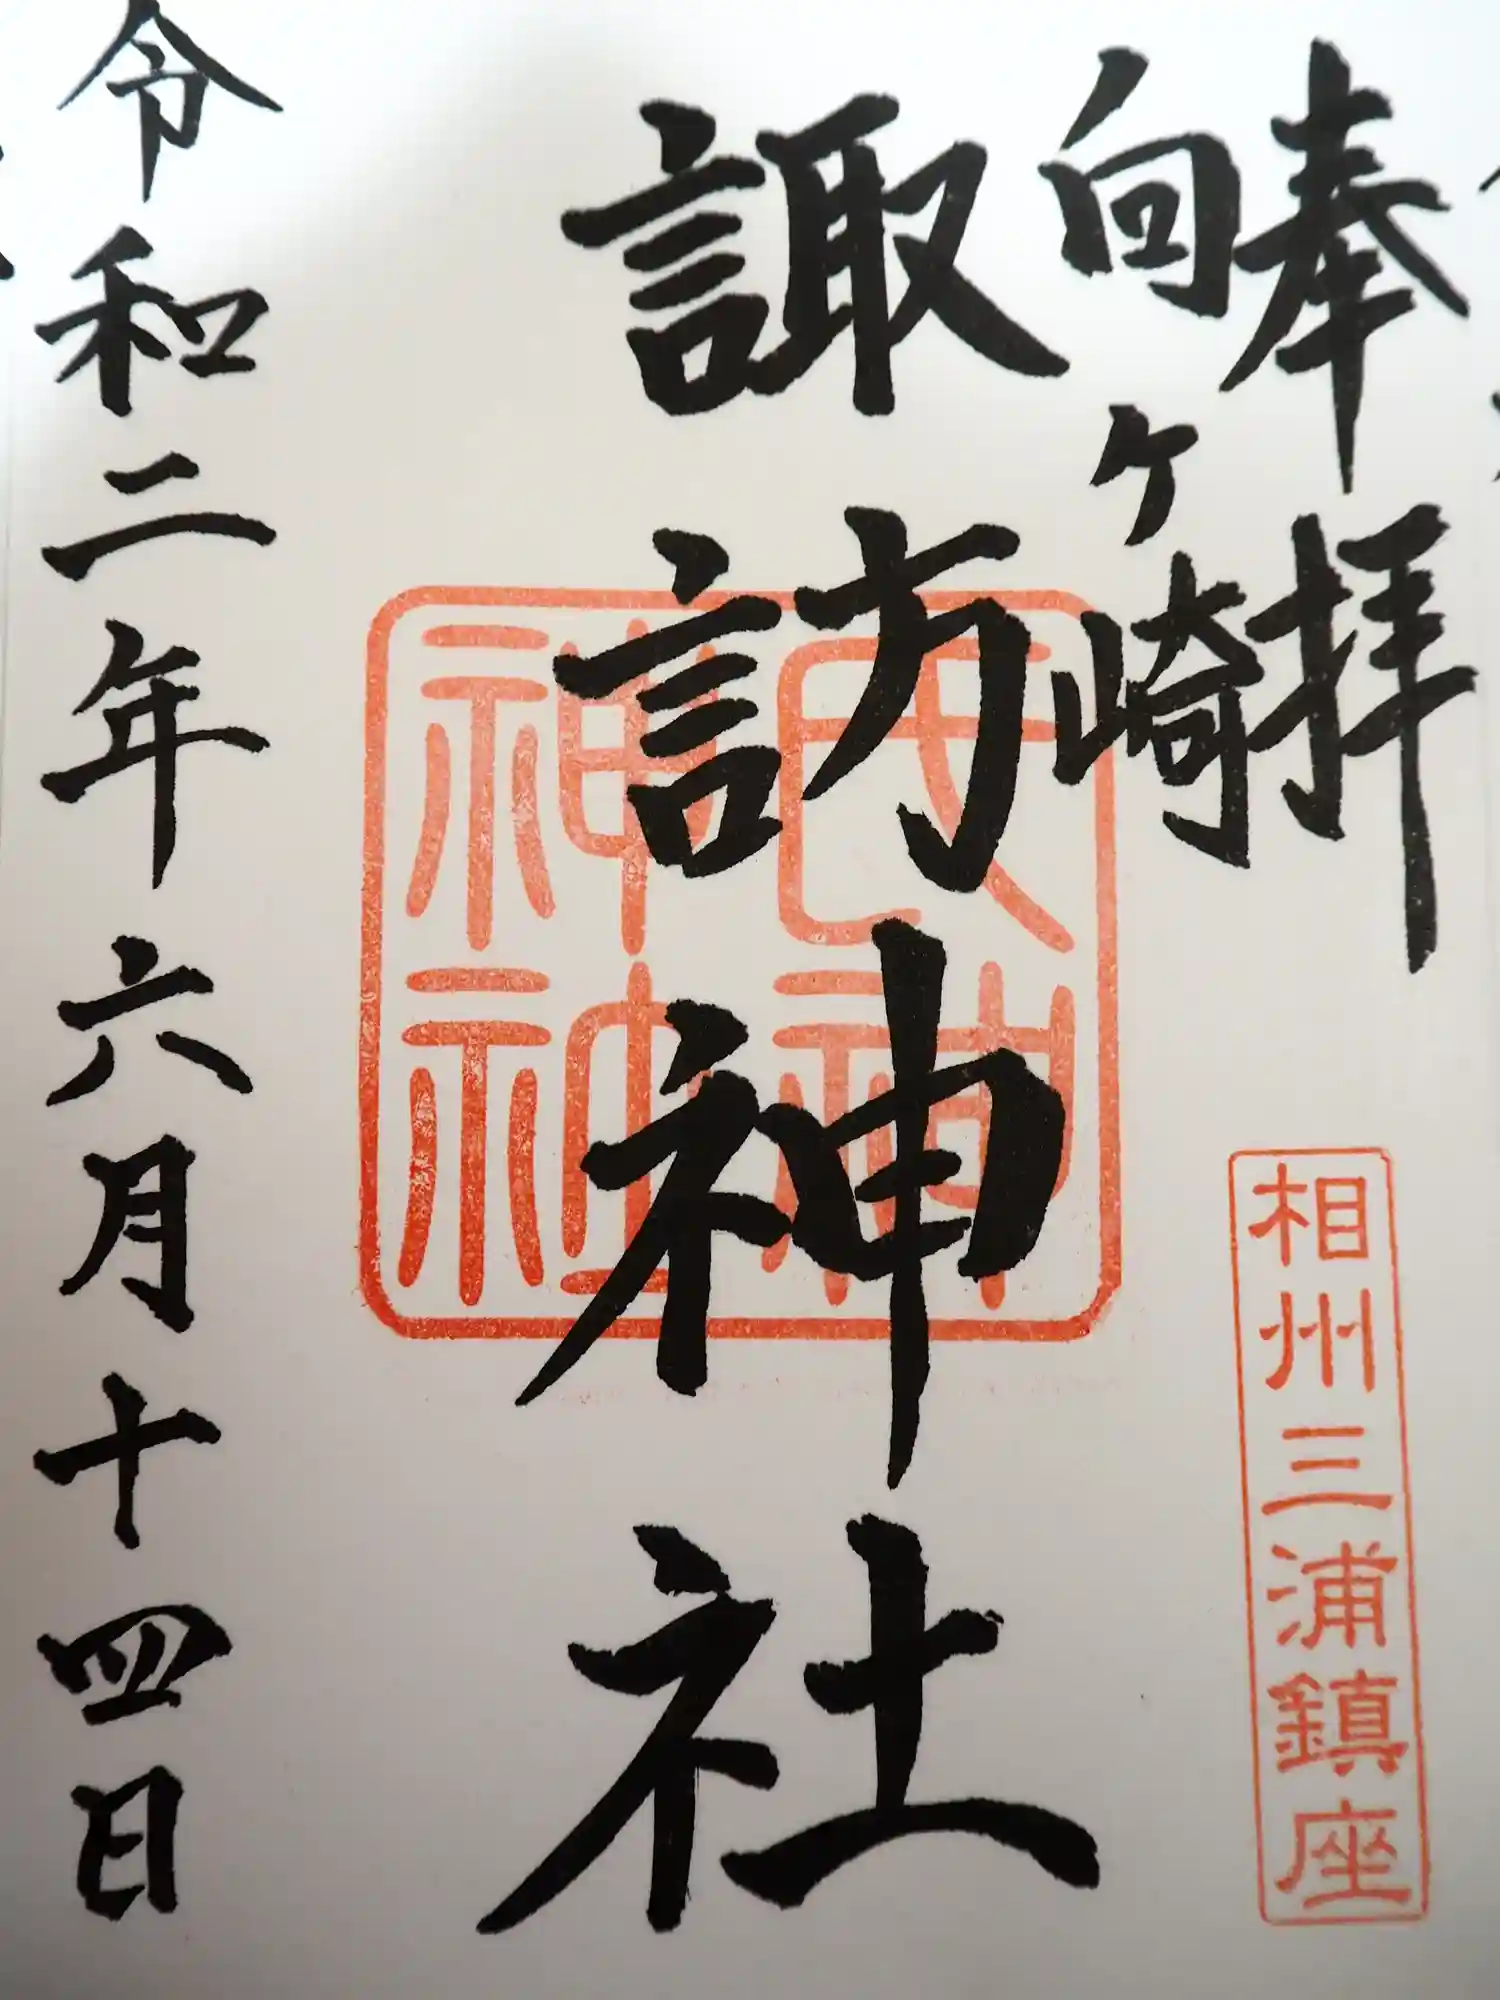 奉拝
相州三浦鎮座
向ヶ崎
諏訪神社
令和二年六月十四日